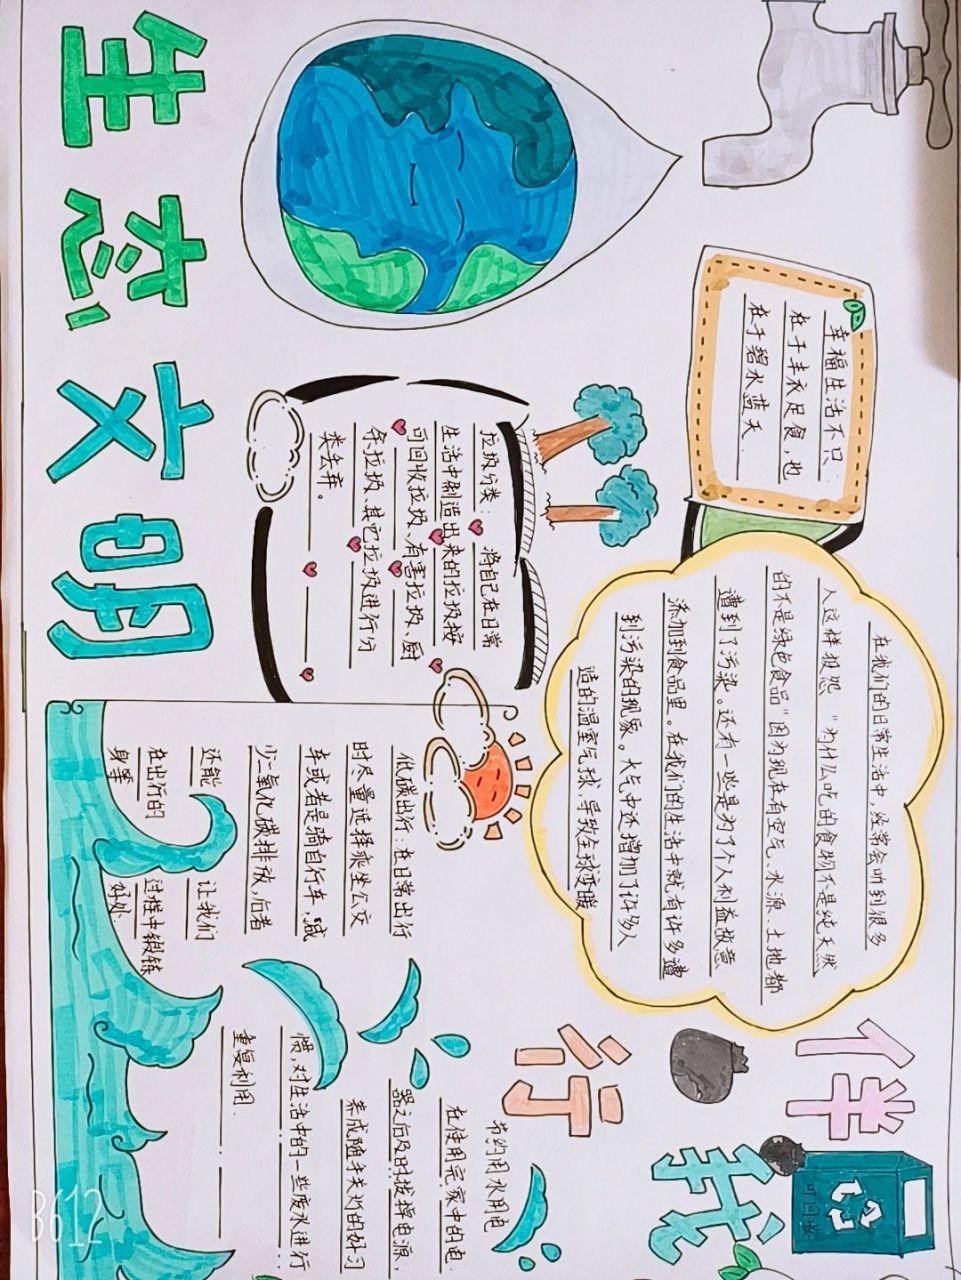 生态文明
伴我行
幸福生活不只
在于丰衣足食,也
在于碧水蓝天.
在我们的日常生活中,经常会听到很多
人这样报怨:"为什么吃的食物不是纯天然
的不是绿色食品"因为现在有空气、水源、土地都
遭到了污染。还有一些是为了个人利益故意
添加到食品里。在我们的生活中就有许多遭
到污染的现象。大气中还增加了许多人
造的温室气候,导致全球变暖
垃圾分类:将自己在日常
生活中制造出来的垃圾按
可回收垃圾、有害垃圾、厨
余垃圾、其它垃圾进行分
类丢弃。
低碳出行:在日常出行
时尽量选择乘坐公交
车或者是骑自行车,减
少二氧化碳排放,后者
还能 让我们
在出行的 过程中锻炼
身 好处
节约用水用电
在使用完家中的电
器之后及时拔掉电源,
养成随手关灯的好习
惯,对生活中的一些废水进行
重复利用.
可回收
B612